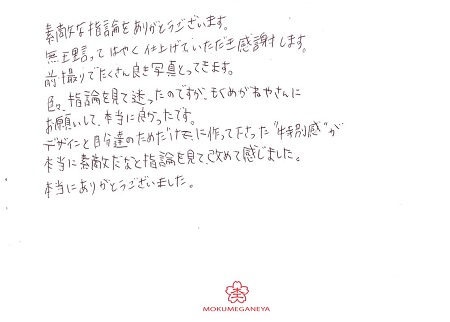 素敵な指論をありがとうございます。
無理言ってはやく仕上げていただき感謝します。
前撮りでたくさん良き写真とってきます。
色々、指論を見て迷ったのですが、もくめがねやさんに
お願いして、本当に良かったです。
デザインと自分達のためだけに作って下さった"特別感"が
本当に素敵だなと指論を見て、改めて感じました。
本当にありがとうございました。
MOKUMEGANEYA